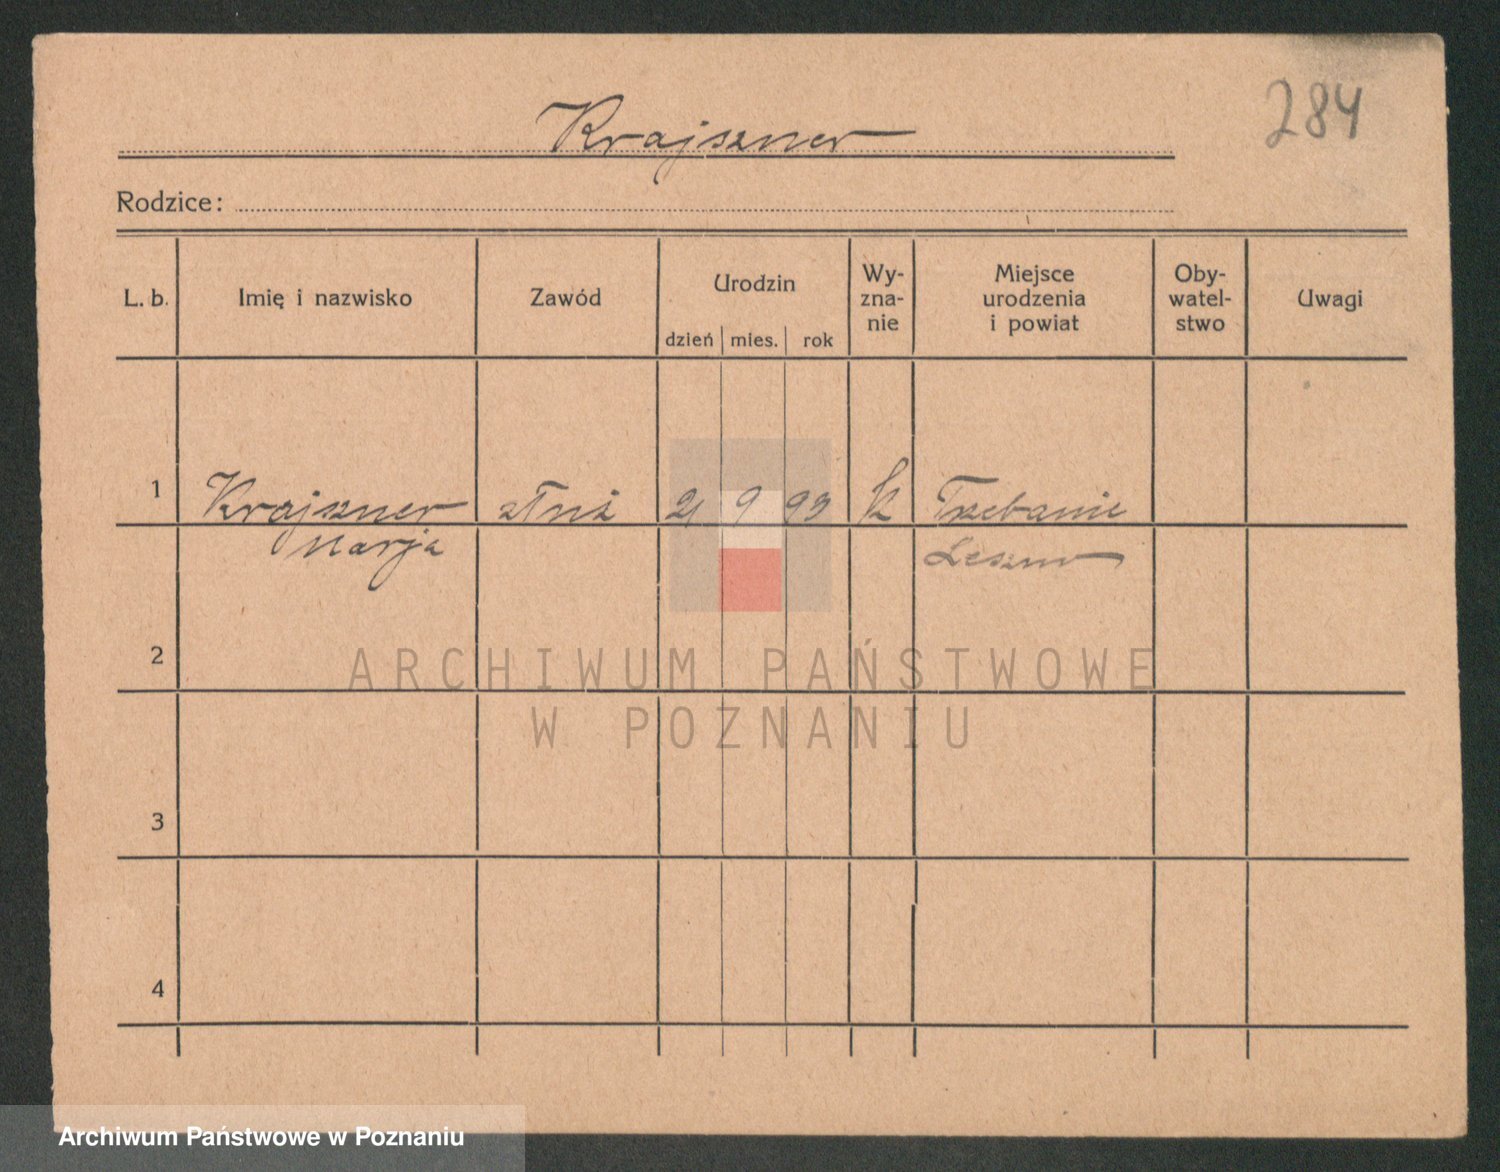 284
Krajszner
Rodzice:
L. b. Imię i nazwisko Zawód Urodzin dzień mies. rok Wy-zna-nie Miejsce urodzenia i powiat Oby-watel-stwo Uwagi
1 Krajszner 21 9 99 k Trzebanie
Marja Leszno
2
ARCHIWUM PAŃSTWOWE
W POZNANIU
3
4
Archiwum Państwowe w Poznaniu